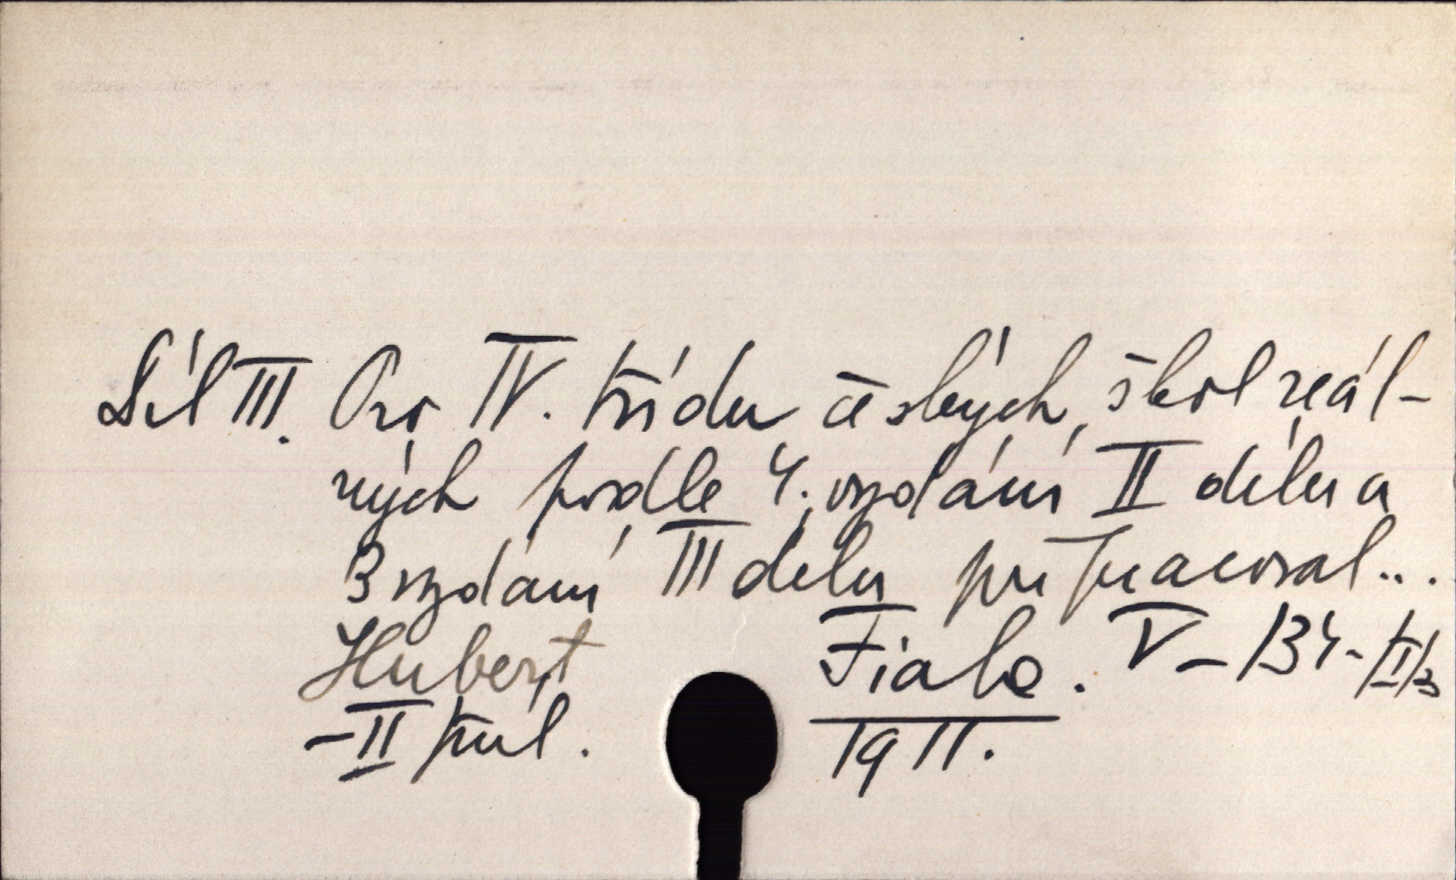 Díl III. Pro IV. třídu českých škol reál-
ných podle 4. vydání II dílu a
3 vydání III dílu přepracoval...
Hubert Fiala. V - 134 - /II/3
- II příl. 1911.